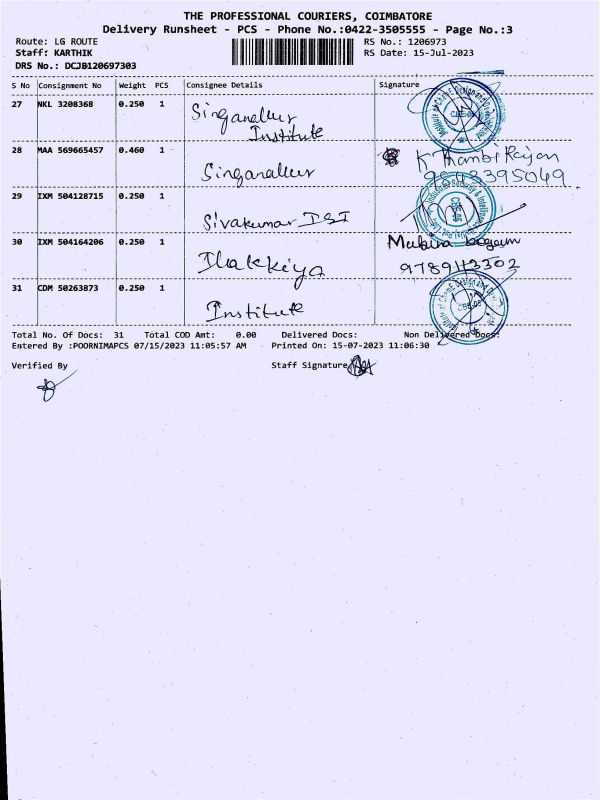 THE PROFESSIONAL COURIERS, COIMBATORE
Delivery Runsheet - PCS - Phone No.:0422-3505555 - Page No.:3
Route: LG ROUTE RS No.: 1206973
Staff: KARTHIK RS Date: 15-Jul-2023
DRS No.: DCJB120697303
S No Consignment No Weight PCS Consignee Details Signature
27 NKL 3208368 0.250 1 Singanallur
Institute
28 MAA 569665457 0.460 1 Singanallur K Thambi Rajan
9843395049
29 IXM 504128715 0.250 1 Sivakumar ISI
30 IXM 504164206 0.250 1 Ilakkiya Mubina begam
9789113302
31 CDM 50263873 0.250 1 Institute
Total No. Of Docs: 31 Total COD Amt: 0.00 Delivered Docs: Non Delivered Docs:
Entered By :POORNIMAPCS 07/15/2023 11:05:57 AM Printed On: 15-07-2023 11:06:30
Verified By Staff Signature